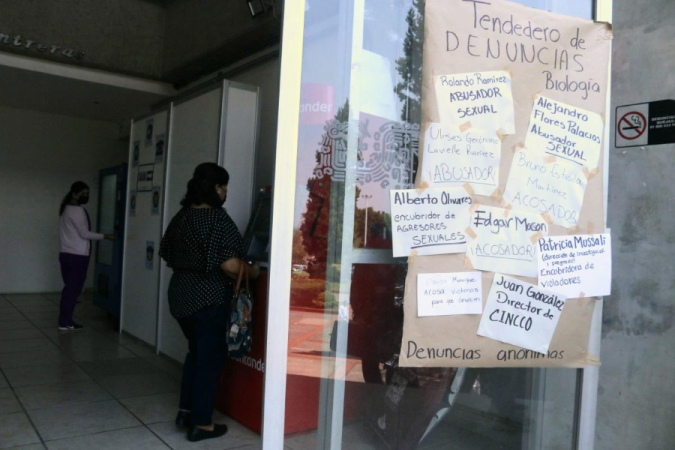 Tendedero de
DENUNCIAS
Biología
Rolando Ramírez
ABUSADOR
SEXUAL
Alejandro
Flores Palacios
Abusador
SEXUAL
Ulises Gerónimo
Ramírez
¡ABUSADOR
Bruno
Martínez
ACOSADOR
Alberto Olivares
encubridor de
AGRESORES
SEXUALES
Edgar
¡ACOSADOR
Patricia Mussali
(dirección de investigación
y posgrado)
Encubridora de
violadores
acosa
para que
Juan González
Director de
CINCCO
Denuncias anónimas
ander
antander